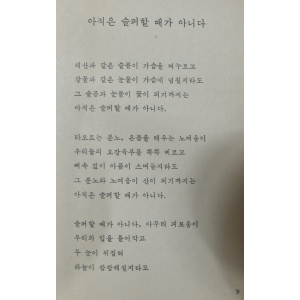 아직은 슬퍼할 때가 아니다
태산과 같은 슬픔이 가슴을 짓누르고
강물과 같은 눈물이 가슴에 넘칠지라도
그 슬픔과 눈물이 꽃이 되기까지는
아직은 슬퍼할 때가 아니다.
타오르는 분노, 온몸을 태우는 노여움이
우리들의 오장육부를 쪽쪽 찌르고
뼈속 깊이 아픔이 스며들지라도
그 분노와 노여움이 산이 되기까지는
아직은 슬퍼할 때가 아니다.
슬퍼할 때가 아니다, 아무리 괴로움이
우리의 입을 틀어막고
두 눈이 뒤집혀
하늘이 캄캄해질지라도